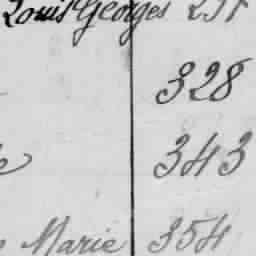 Louis Georges
328
343
Marie 354